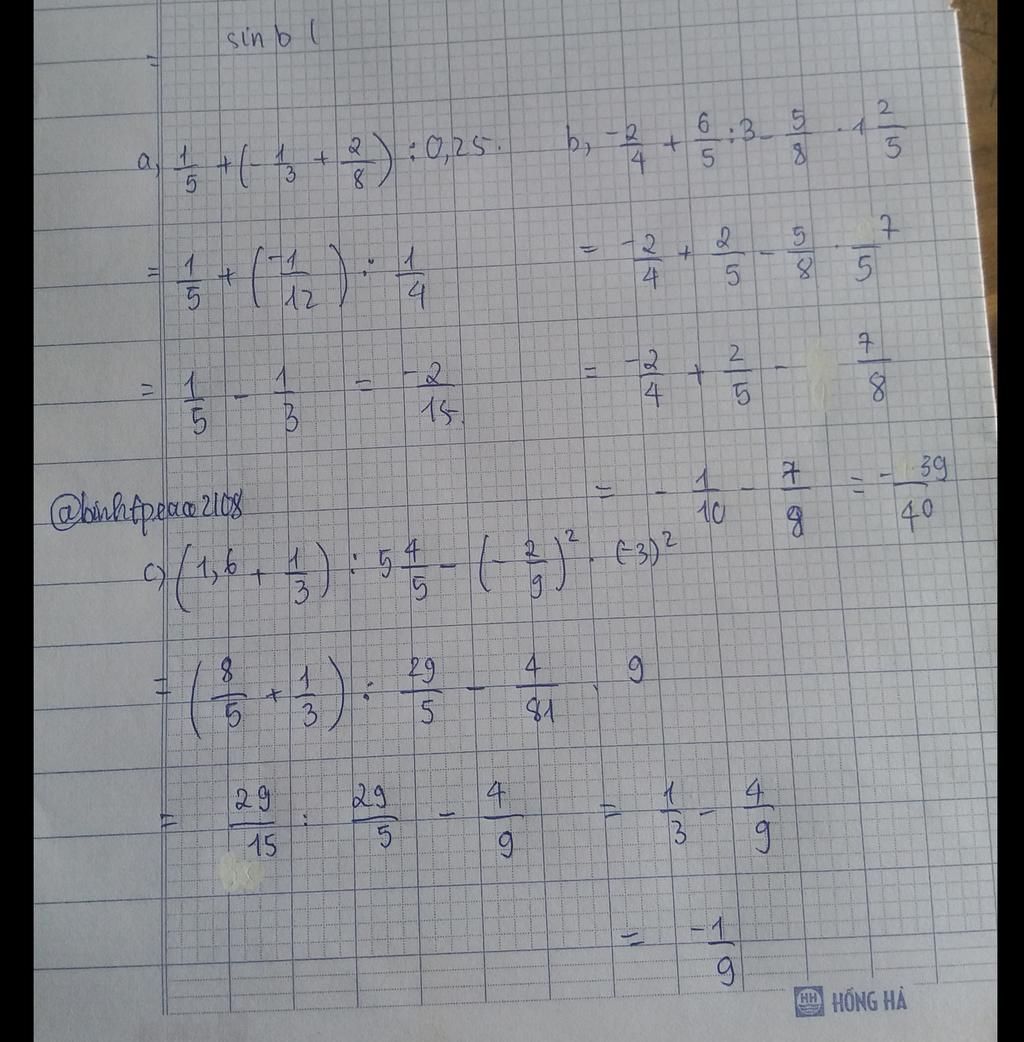 sin b (
=
a, 1/5 + (-1/3 + 2/8) : 0,25.
= 1/5 + (-1/12) : 1/4
= 1/5 - 1/3 = -2/15
b, -2/4 + 6/5 : 3 - 5/8 . 1 2/5
= -2/4 + 2/5 - 5/8 . 7/5
= -2/4 + 2/5 - 7/8
= -1/10 - 7/8 = -39/40
c) (1,6 + 1/3) : 5 4/5 - (-2/9)² . (-3)²
= (8/5 + 1/3) : 29/5 - 4/81 . 9
= 29/15 : 29/5 - 4/9 = 1/3 - 4/9
= -1/9
HH HỒNG HÀ